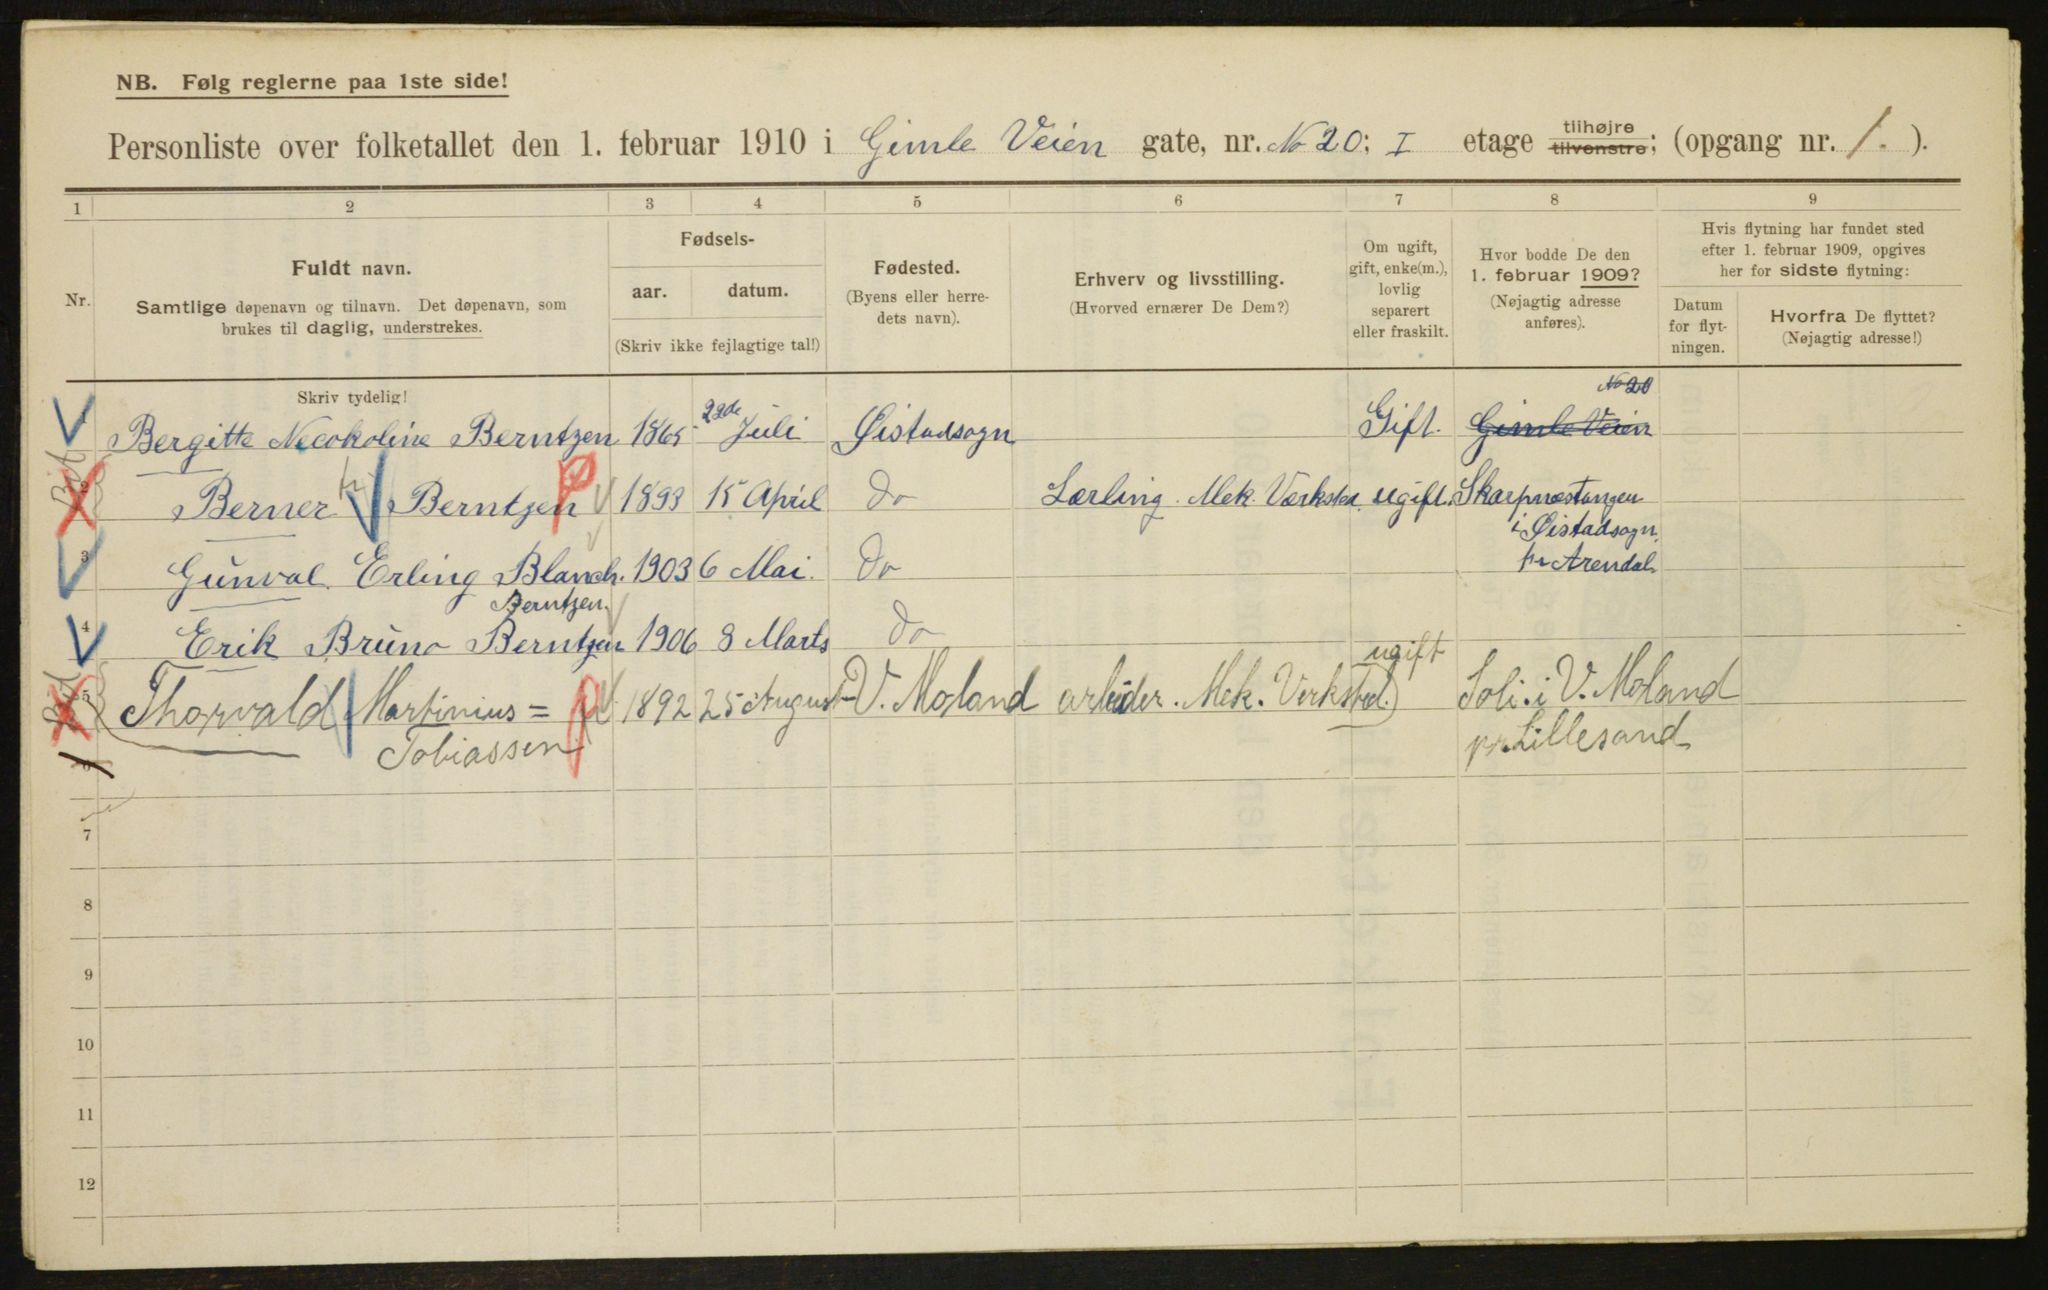 NB. Følg reglerne paa 1ste side!
Personliste over folketallet den 1. februar 1910 i Gimle Veien gate, nr. No 20; I etage tilhøjre tilvenstre; (opgang nr. 1. ).
1 2 3 4 5 6 7 8 9
Nr.
Fuldt navn.
Samtlige døpenavn og tilnavn. Det døpenavn, som
brukes til daglig, understrekes.
Fødsels-
aar. datum.
(Skriv ikke fejlagtige tal!)
Fødested.
(Byens eller herre-
dets navn).
Erhverv og livsstilling.
(Hvorved ernærer De Dem?)
Om ugift,
gift, enke(m.),
lovlig
separert
eller fraskilt.
Hvor bodde De den
1. februar 1909?
(Nøjagtig adresse
anføres).
Hvis flytning har fundet sted
efter 1. februar 1909, opgives
her for sidste flytning:
Datum
for flyt-
ningen.
Hvorfra De flyttet?
(Nøjagtig adresse!)
Skriv tydelig!
No 20
1 Bergitte Necokoline Berntzen 1865 22de Juli Øistadsogn Gift. Gimle Veien
2 Berner Berntzen 1893 15 April Do Lærling Mek. Værksted ugift. Skarpnæstangen
i Øistadsogn
3 Gunval Erling Blanch. 1903 6 Mai. Do pr Arendal
Berntzen.
4 Erik Bruno Berntzen 1906 8 Marts Do
ugift
5 Thorvald Martinius = 1892 25 August V. Moland arbeider. Mek. Verksted. Soli. i V. Moland
6 Tobiassen pr Lillesand
7
8
9
10
11
12